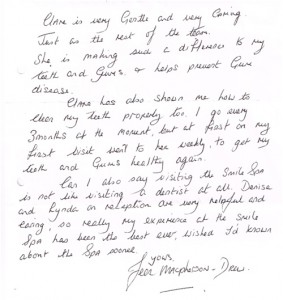 Clare is very Gentle and very Caring
Just as the rest of the team.
She is making such a difference to my
teeth and Gums, & helps prevent Gum
disease.
Clare has also shown me how to
clean my teeth properly too. I go every
3months at the moment, but at first on my
first visit went to her weekly, to get my
teeth and Gums healthy again.
Can I also say visiting the Smile Spa
is not like visiting a dentist at all. Denise
and Lynda on reception are very helpful and
caring, so really my experience at the smile
Spa has been the best ever, wished I'd known
about the Spa sooner.
Yours.
Jean Macpherson-Drew.